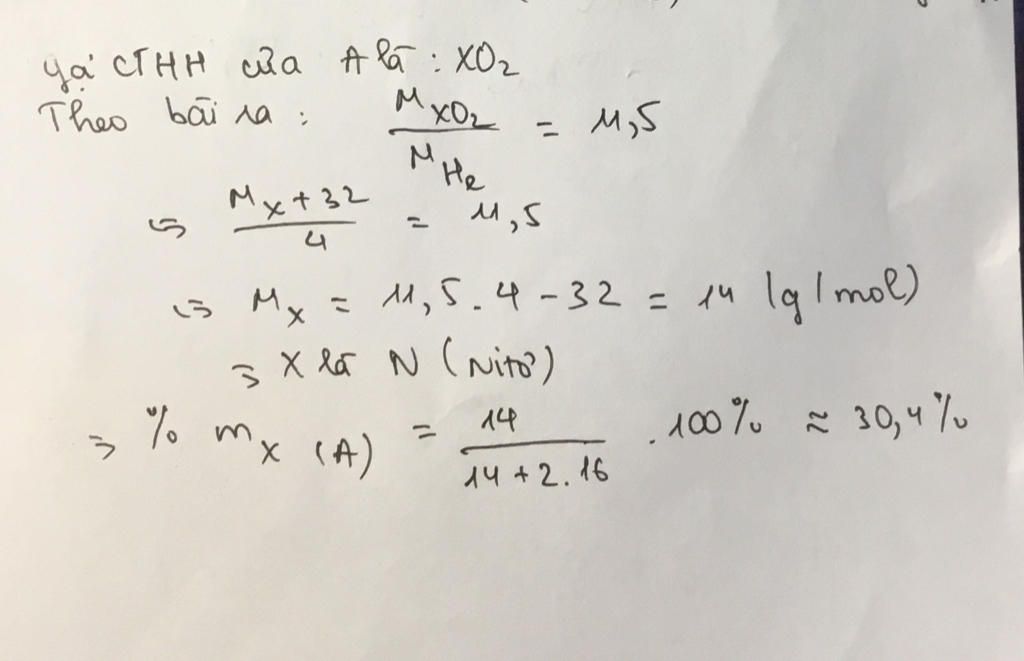 Gọi CTHH của A là : XO₂
Theo bài ra : M_XO₂ / M_He = 11,5
⇔ (M_X + 32) / 4 = 11,5
⇔ M_X = 11,5 . 4 - 32 = 14 (g/mol)
⇒ X là N (Nitơ)
⇒ % m_X (A) = 14 / (14 + 2.16) . 100% ≈ 30,4%